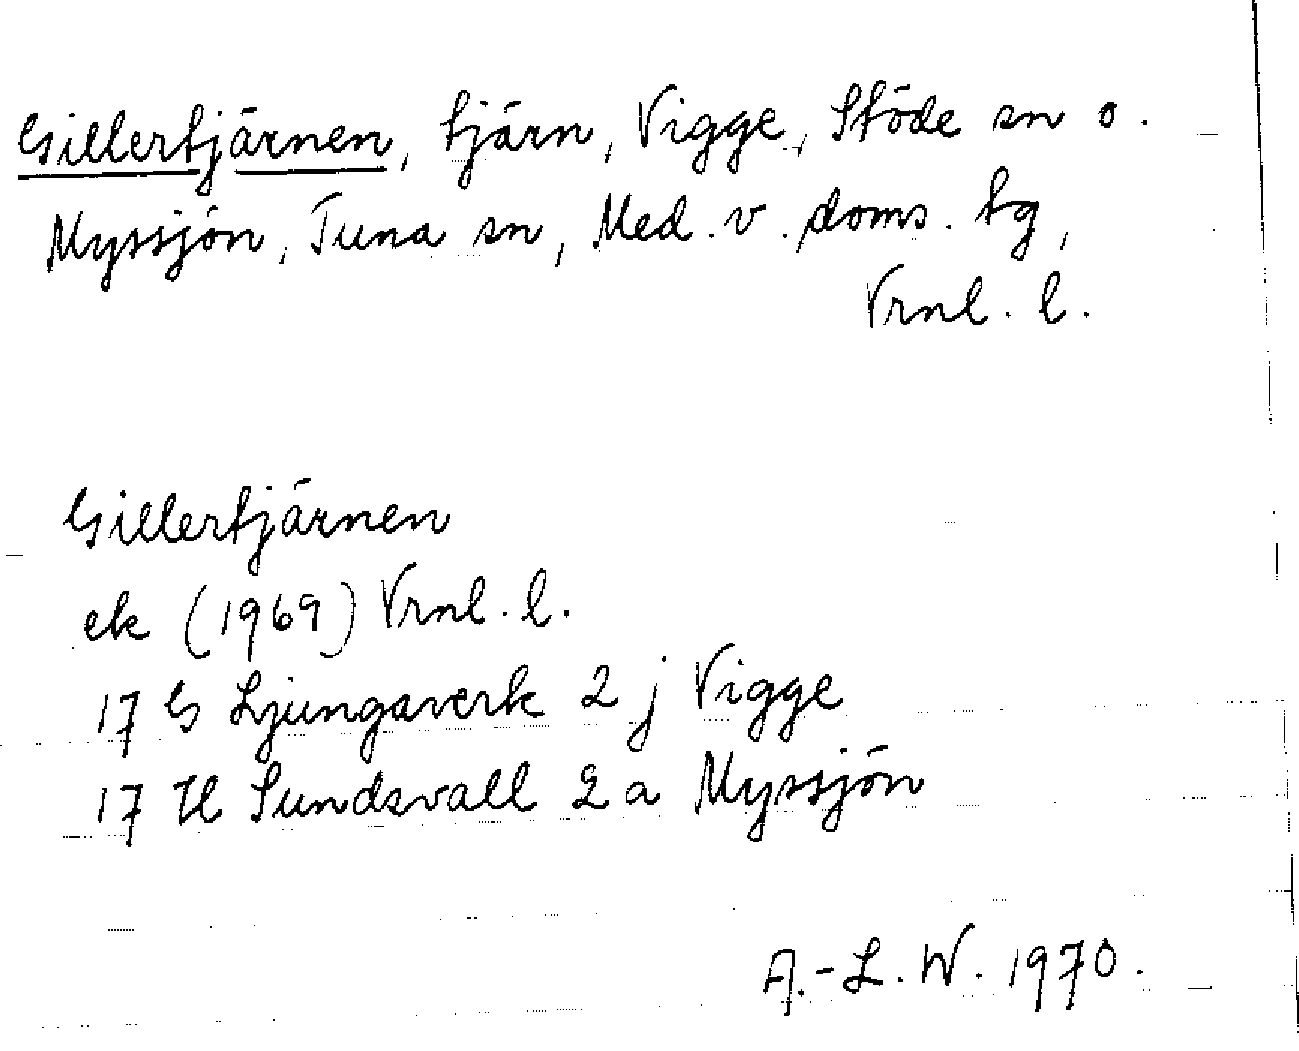 Gillertjärnen, tjärn, Vigge, Stöde sn o.
Myssjön, Tuna sn, Med. v. doms. tg,
Vrnl. l.
Gillertjärnen
ek (1969) Vrnl. l.
17 G Ljungaverk 2 j Vigge
17 H Sundsvall 2 a Myssjön
A.-L. W. 1970.